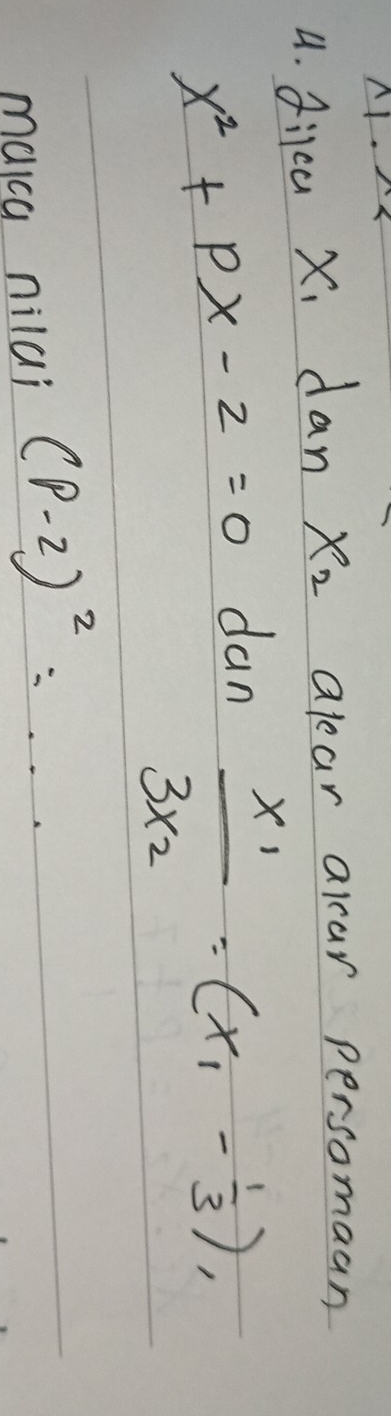 4. Jika x₁ dan x₂ akar akar persamaan
x² + px - 2 = 0 dan x₁/3x₂ = (x₁ - 1/3),
maka nilai (p-2)² = ...